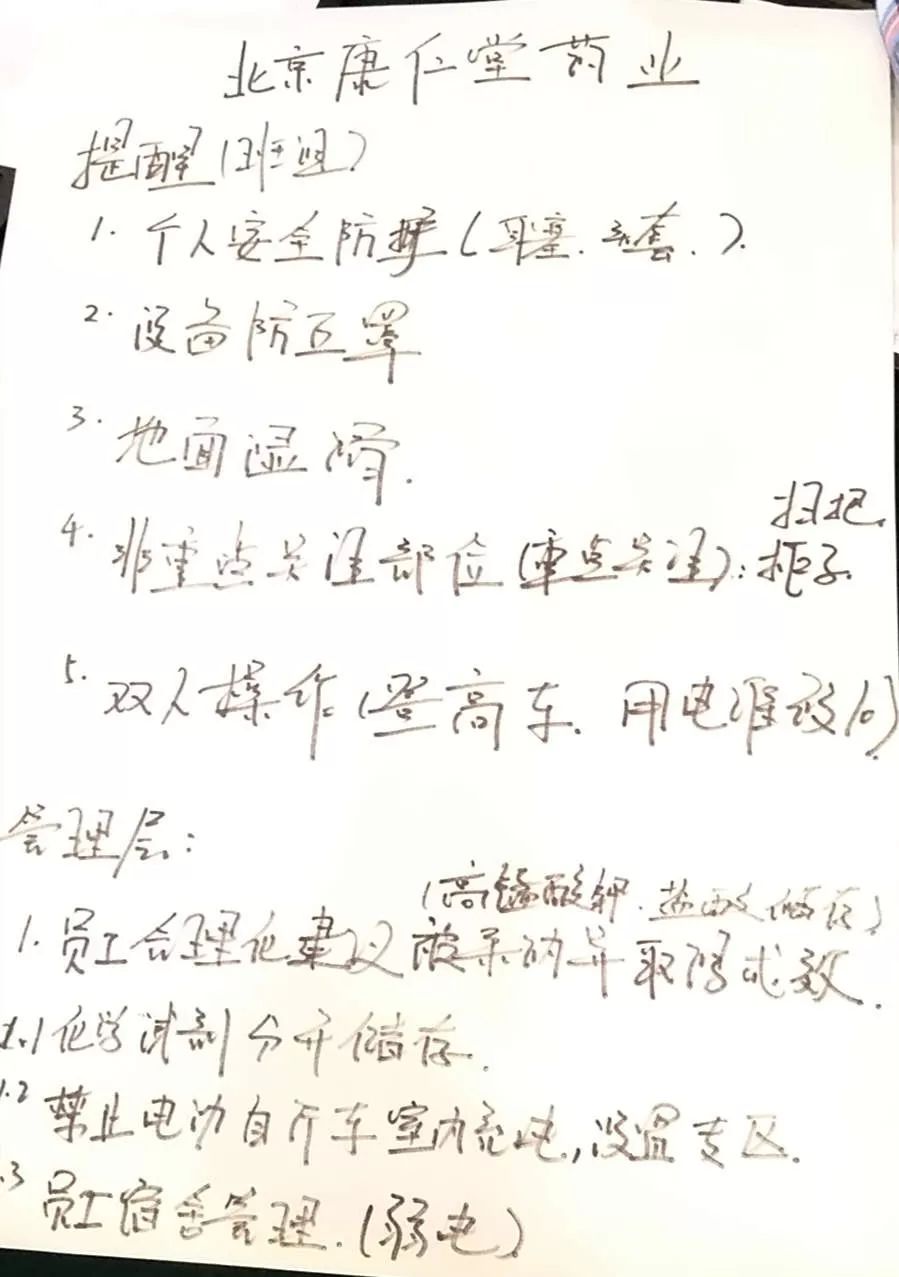 北京康仁堂药业
提醒(班组)
1. 个人安全防护(耳塞.头套.).
2. 设备防互罩
3. 地面湿滑.
扫把.
4. 非重点关注部位(重点关注):拒子.
5. 双人操作(登高车.用电准设fo).
管理层:
(高锰酸钾.盐酸储存)
1. 员工合理化建议被采纳并取得成效.
1.1 化学试剂分开储存.
1.2 禁止电动自行车室内充电,设置专区.
.3 员工宿舍管理.(弱电)